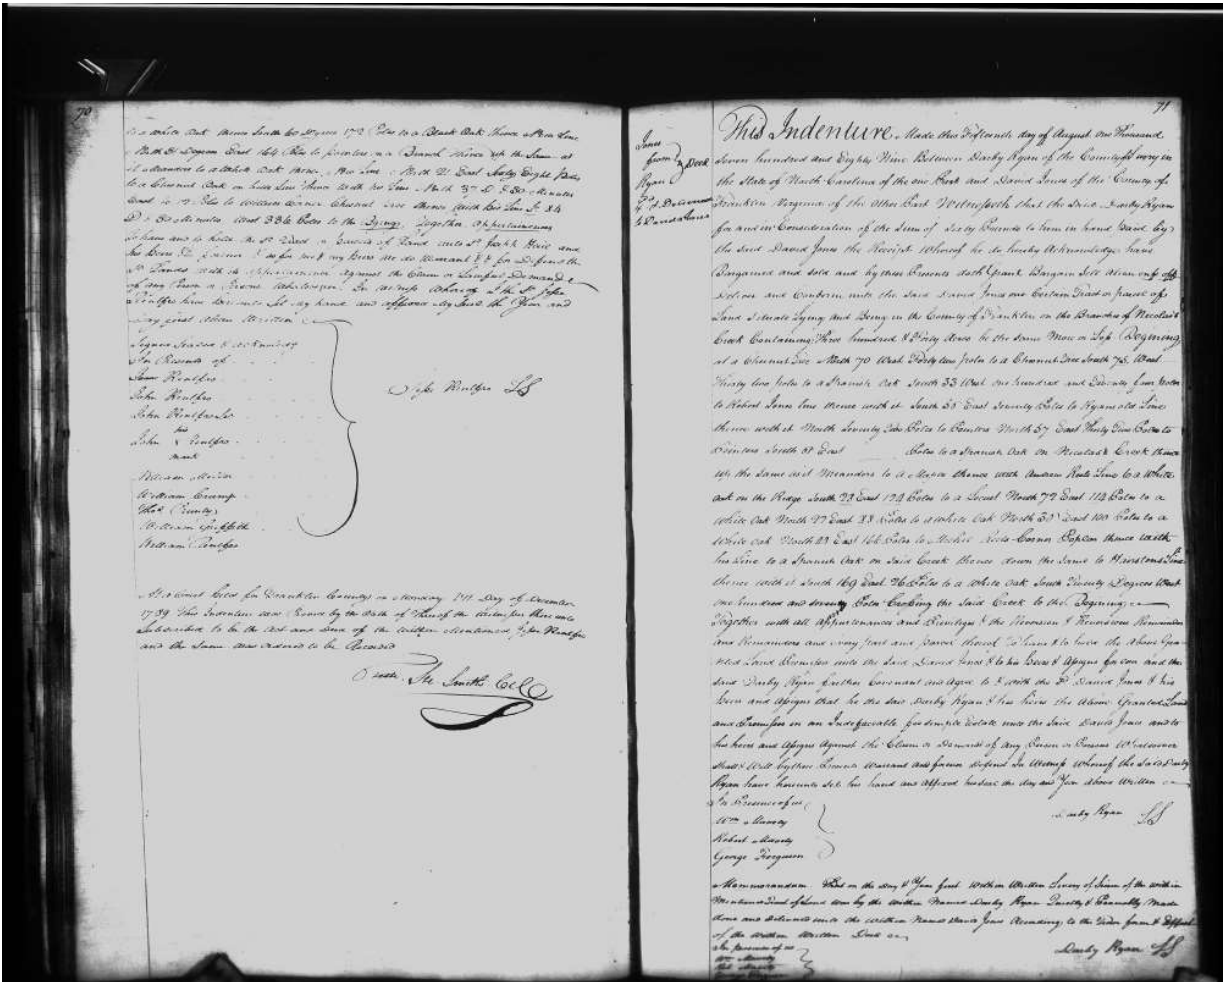 70
to a White Oak thence South 60 Degrees 172 Poles to a Black Oak thence New Line
North Degrees East 164 Poles to pointers on a Branch thence up the Same as
it Meanders to a White Oak thence New Line North 21 East Sixty Eight Poles
to a Chesnut Oak on Line thence With his Line North 37 D & 30 Minutes
West Poles to William Corner Chesnut tree thence With his Line So 84
D & 30 Minutes West 336 Poles to the Begining Together Appurtainences
To have and to hold the Sd Land or parcel of Land unto Sd Joseph Hail and
his Heirs &c for me & my Heirs we do Warrant & for Defend the
Sd Lands with its Appurtainences Against the Claim or Lawfull Demands
of any Person or Persons Whatsoever In Witness Whereof I the Sd Jesse
Rentfro have hereunto Set My hand and affixed My Seal the Year and
Day first above Written
Signed Sealed & Acknowledgd
In Presents of
Rentfro
John Rentfro
John Rentfro
his
John X Rentfro
mark
William
William Crump
Thos
William Griffith
William Rentfro
Jesse Rentfro LS
At a Court held for Franklin County on Monday Day of December
1789 This Indenture was Proved by the Oath of Three of the Witnesses thereunto
Subscribed to be the Act and Deed of the Within Mentioned Jesse Rentfro
and the Same was ordered to be Recorded
Teste. Ste Smith CC
71
Jones
from
Ryan
Deed
Delivered
to David Jones
This Indenture Made this Fifteenth day of August one Thousand
Seven hundred and Eighty Nine Between Darby Ryan of the County of Surry in
the State of North Carolina of the one Part and David Jones of the County of
Franklin Virginia of the other Part Witnesseth that the Said Darby Ryan
for and in Consideration of the Sum of Sixty Pounds to him in hand Paid by
the Said David Jones the Receipt Whereof he do hereby Acknowledge have
Bargained and Sold and by these Presents doth Grant Bargain Sell alien enfeoff
Deliver and Confirm unto the Said David Jones one Certain Tract or parcel of
Land Situate Lying and Being in the County of Franklin on the Branches of Nicolass
Creek Containing Three hundred & Forty Acres be the Same More or Less Begining
at a Chesnut Tree North 70 West Forty two poles to a Chesnut Tree South 75 West
Thirty two poles to a Spanish Oak South 33 West one hundred and Twenty four poles
to Robert Jones line thence with it South 35 East Seventy Poles to Ryans old Line
thence with it North Seventy Two Poles to Pointers North 57 East Thirty Two Poles to
Pointers South 58 East Poles to a Spanish Oak on Nicolass Creek thence
up the Same as it Meanders to a Maple thence with Line to a White
oak on the Ridge South 23 East 124 Poles to a Locust North 72 East 114 Poles to a
White Oak North 27 East 88 Poles to a White Oak North 30 East 100 Poles to a
White Oak North 23 East 166 Poles to Corner Poplar thence with
his Line to a Spanish Oak on Said Creek thence down the Same to Hairstons Line
thence with it South 169 East 26 Poles to a White Oak South Twenty Degrees West
one hundred and Seventy Poles Crossing the Said Creek to the Begining
Together with all Appurtenances and Priviliges & the Reversion & Reversions Remainder
and Remainders and every part and parcel thereof To have & to hold the Above Gran
ted Land Premises unto the Said David Jones & to his Heirs & Assigns for ever and the
Said Darby Ryan further Covenant and Agree to & with the Sd David Jones & his
Heirs and Assigns that he the Said Darby Ryan & his heirs the Above Granted Land
and Premises in an Indefeacible fee simple Estate unto the Said David Jones and to
his heirs and Assigns Against the Claim or Demand of Any Person or Persons Whatsoever
Shall & Will by these Presents Warrant and forever Defend In Witness Whereof the Said Darby
Ryan have hereunto Set his hand and Affixed his Seal the day and Year Above Written
In Presence of us
Wm Murdy
Robert Murdy
George Ferguson
Darby Ryan LS
Memmorandum That on the Day & Year first Within Written Livery of Seisin of the within
Mentioned Tract of Land was by the Within Named Darby Ryan Quietly & Peaceably Made
done and delivered unto the Within Named David Jones According to the Tenor form & Effect
of the Within Written Deed
In presence of us
Wm Murdy
Robt Murdy
George Ferguson
Darby Ryan LS